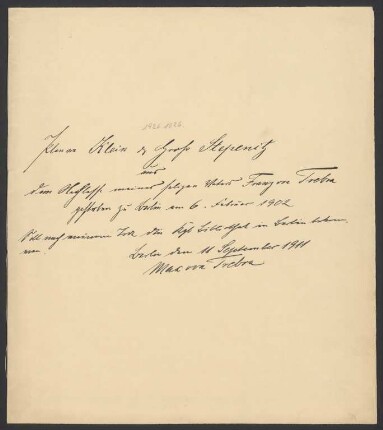 Pläne von Klein & Groß Stepenitz
aus
dem Nachlasse meines seligen Vaters Franz von Trebra
gestorben zu Berlin am 6. Februar 1902
Soll nach meinem Tode der Kgl. Bibliothek in Berlin
Berlin den 11 September 1911
Max von Trebra